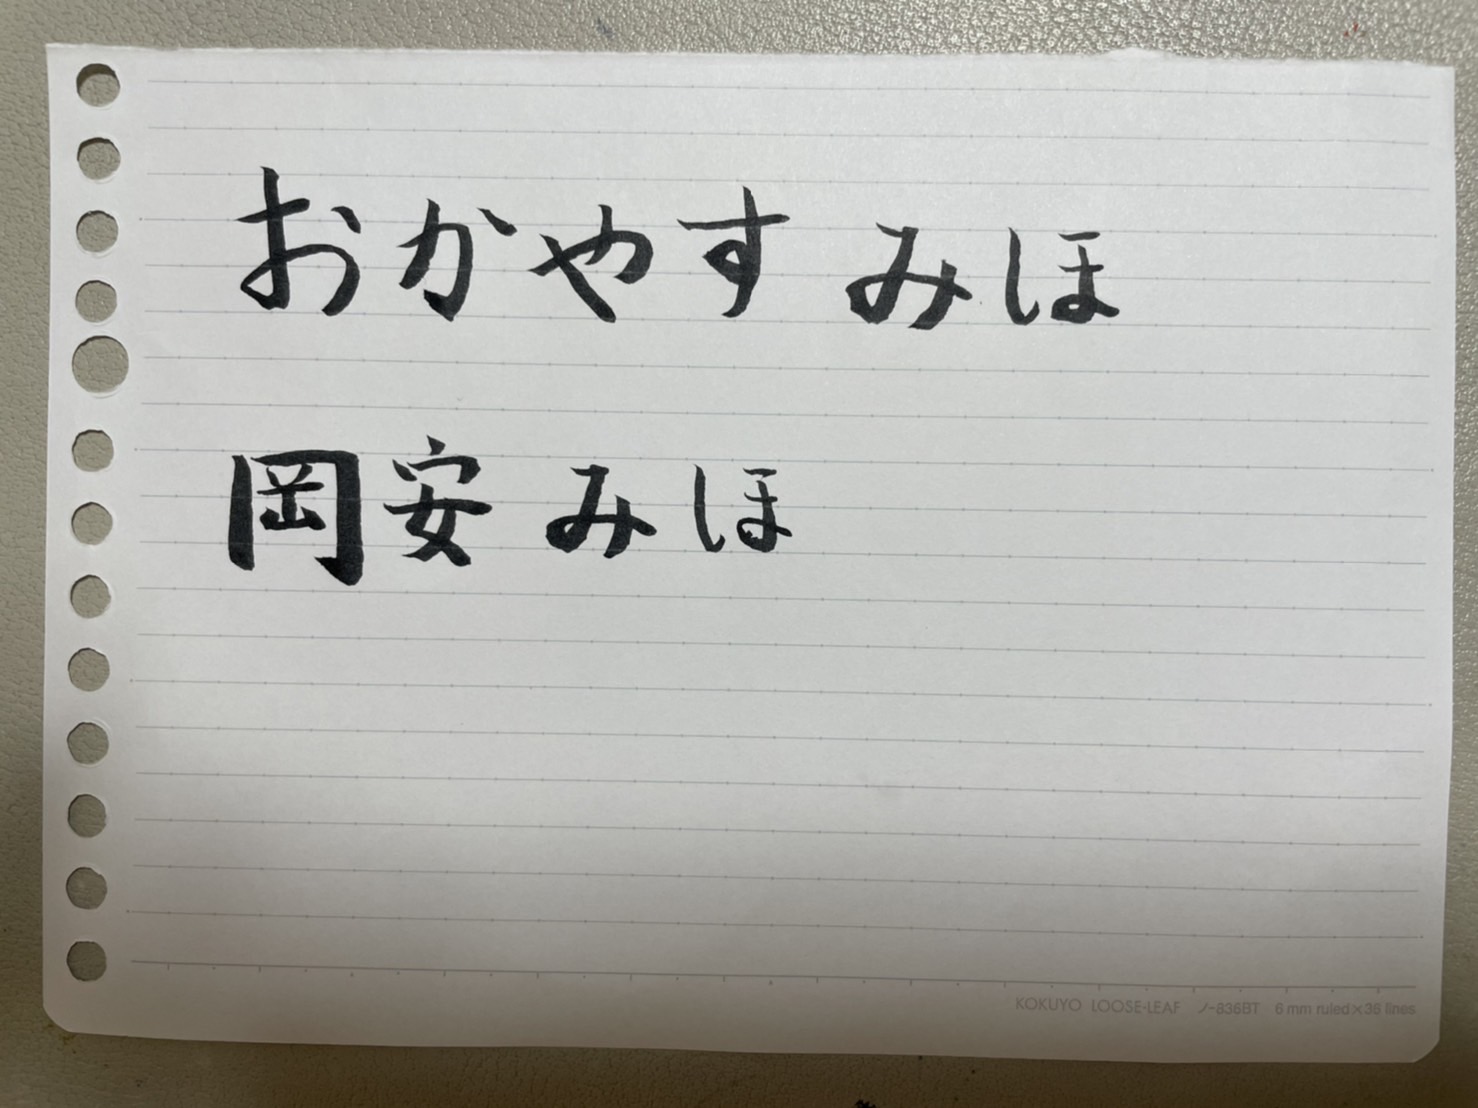 おかやす みほ
岡安 みほ
KOKUYO LOOSE-LEAF ノ-836BT 6 mm ruled×36 lines